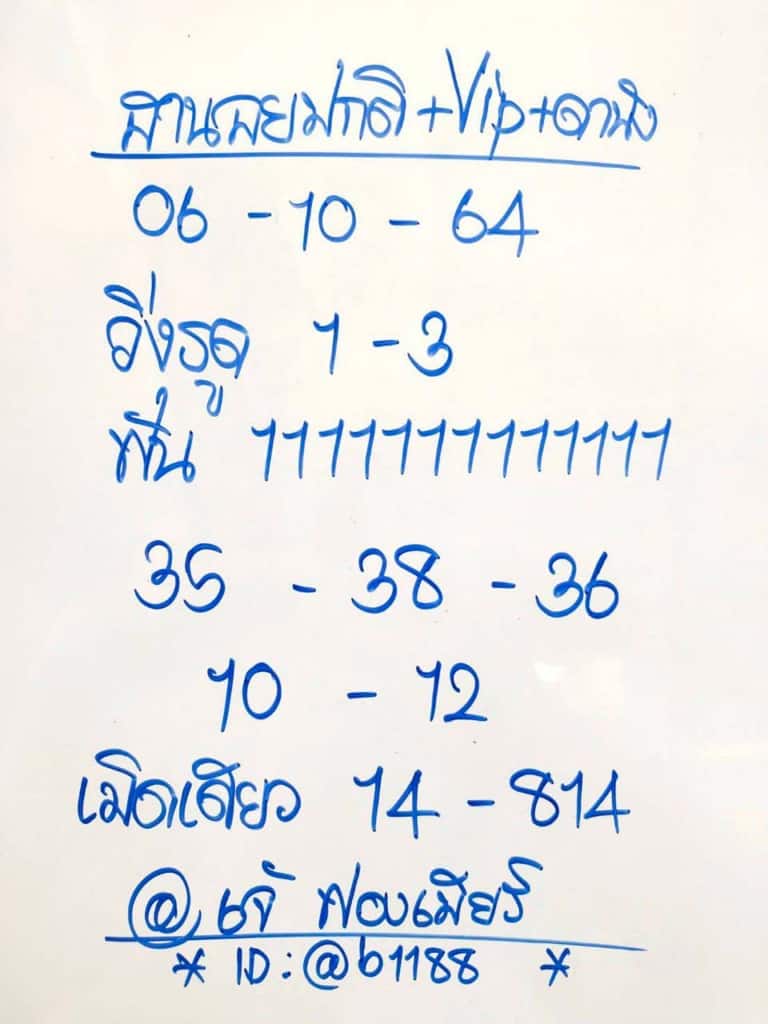 ฮานอยปกติ+Vip+ดานัง
06 - 10 - 64
วิ่งรูด 1 - 3
ฟัน 11111111111111
35 - 38 - 36
10 - 12
เม็ดเดียว 14 - 814
@ เจ๊ ฟองเบียร์
* ID : @b1188 *